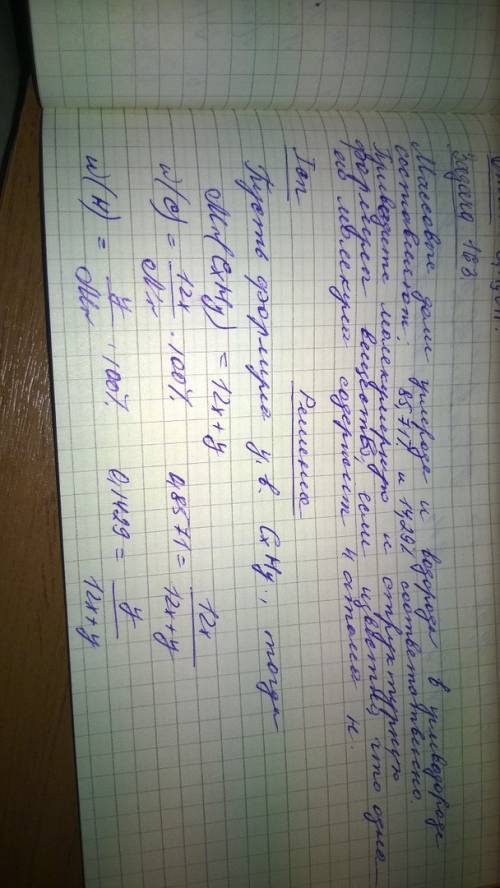 Задача 183
Массовые доли углерода и водорода в углеводороде
составляют: 85,71 и 14,29% соответственно.
Приведите молекулярную и структурную
формулы вещества, если известно, что одна
его молекула содержит 4 атома H.
Iоп Решение
Пусть формула у.в. CxHy, тогда
Mr(CxHy) = 12x+y
w(C) = 12x / Mr · 100% 0,8571 = 12x / 12x+y
w(H) = y / Mr · 100% 0,1429 = y / 12x+y